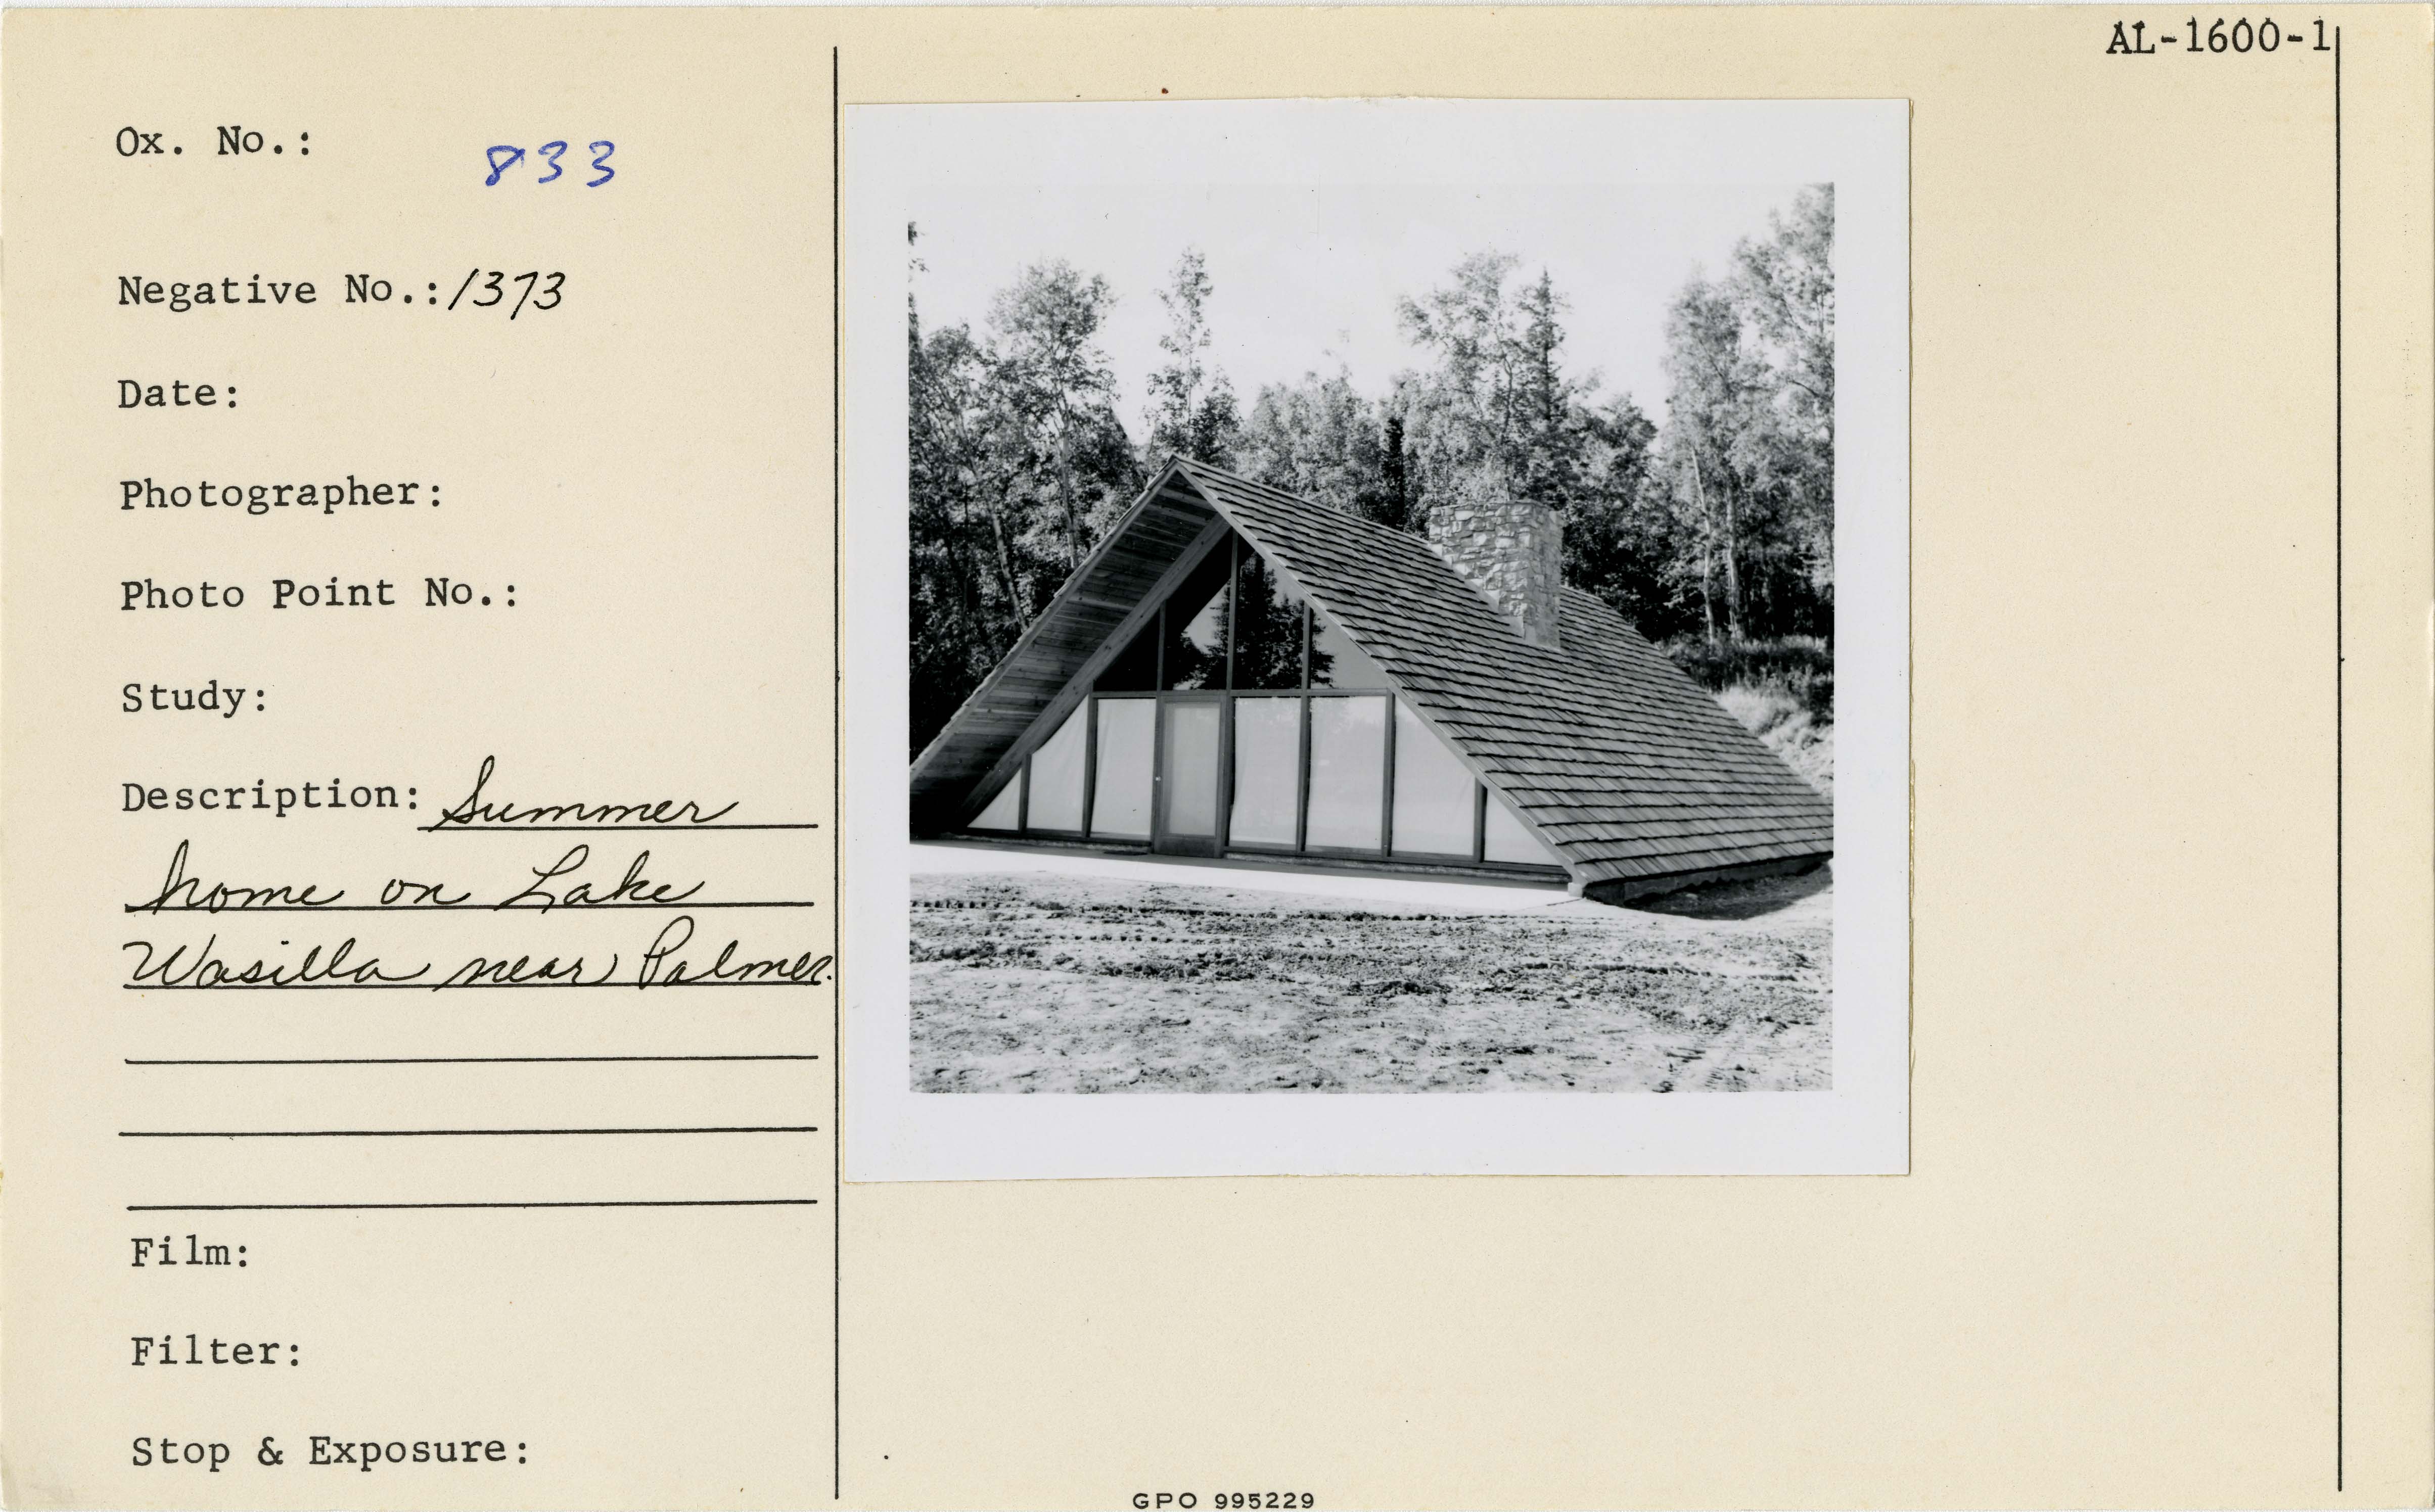 AL-1600-1
Ox. No.: 833
Negative No.: 1373
Date:
Photographer:
Photo Point No.:
Study:
Description: Summer
home on Lake
Wasilla near Palmer.
Film:
Filter:
Stop & Exposure:
GPO 995229